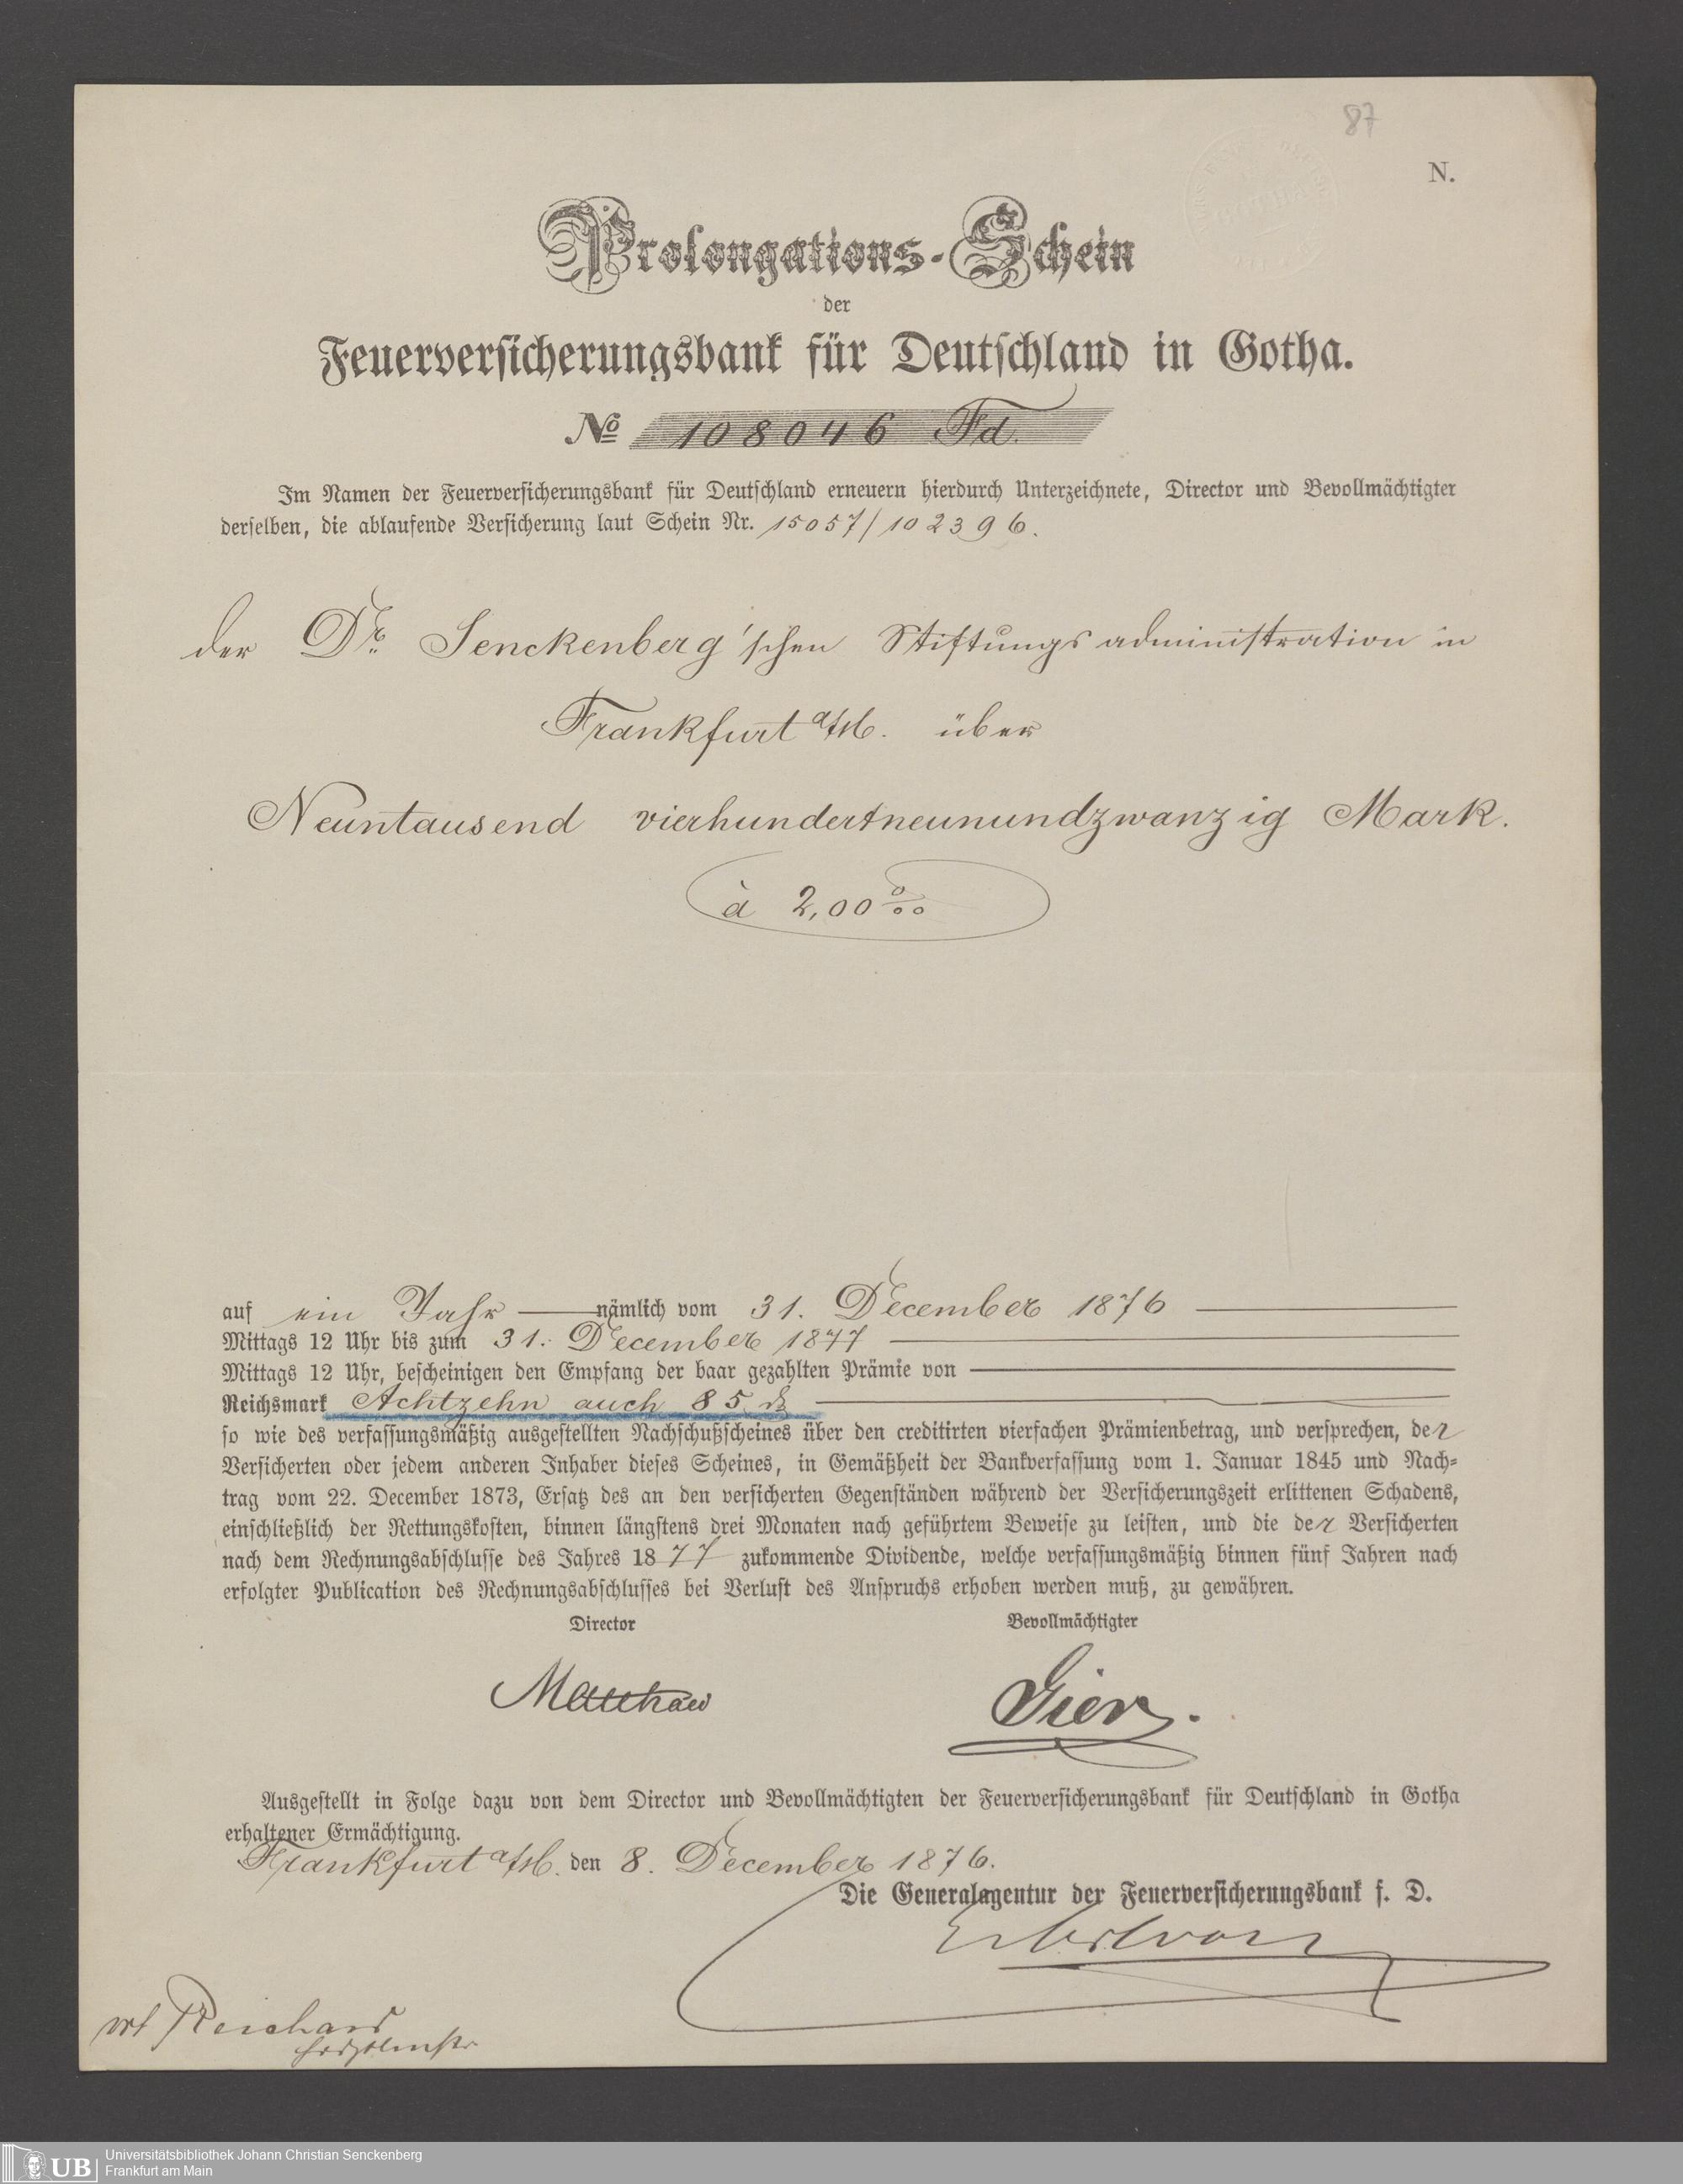 87
N.
Prolongations-Schein
der
Feuerversicherungsbank für Deutschland in Gotha.
No 108046 Fd.
Im Namen der Feuerversicherungsbank für Deutschland erneuern hierdurch Unterzeichnete, Director und Bevollmächtigter
derselben, die ablaufende Versicherung laut Schein Nr. 15057/102396.
der Dr. Senckenberg'schen Stiftungsadministration in
Frankfurt a/M. über
Neuntausend vierhundertneunundzwanzig Mark.
à 2,00 ‰
auf ein Jahr nämlich vom 31. December 1876
Mittags 12 Uhr bis zum 31. December 1877
Mittags 12 Uhr, bescheinigen den Empfang der baar gezahlten Prämie von
Reichsmark Achtzehn auch 85 ₰
so wie des verfassungsmäßig ausgestellten Nachschußscheines über den creditirten vierfachen Prämienbetrag, und versprechen, der
Versicherten oder jedem anderen Inhaber dieses Scheines, in Gemäßheit der Bankverfassung vom 1. Januar 1845 und Nach-
trag vom 22. December 1873, Ersatz des an den versicherten Gegenständen während der Versicherungszeit erlittenen Schadens,
einschließlich der Rettungskosten, binnen längstens drei Monaten nach geführtem Beweise zu leisten, und die der Versicherten
nach dem Rechnungsabschlusse des Jahres 1877 zukommende Dividende, welche verfassungsmäßig binnen fünf Jahren nach
erfolgter Publication des Rechnungsabschlusses bei Verlust des Anspruchs erhoben werden muß, zu gewähren.
Director Bevollmächtigter
Ausgestellt in Folge dazu von dem Director und Bevollmächtigten der Feuerversicherungsbank für Deutschland in Gotha
erhaltener Ermächtigung.
Frankfurt a/M. den 8. December 1876.
Die Generalagentur der Feuerversicherungsbank f. D.
Reichard
UB Universitätsbibliothek Johann Christian Senckenberg
Frankfurt am Main